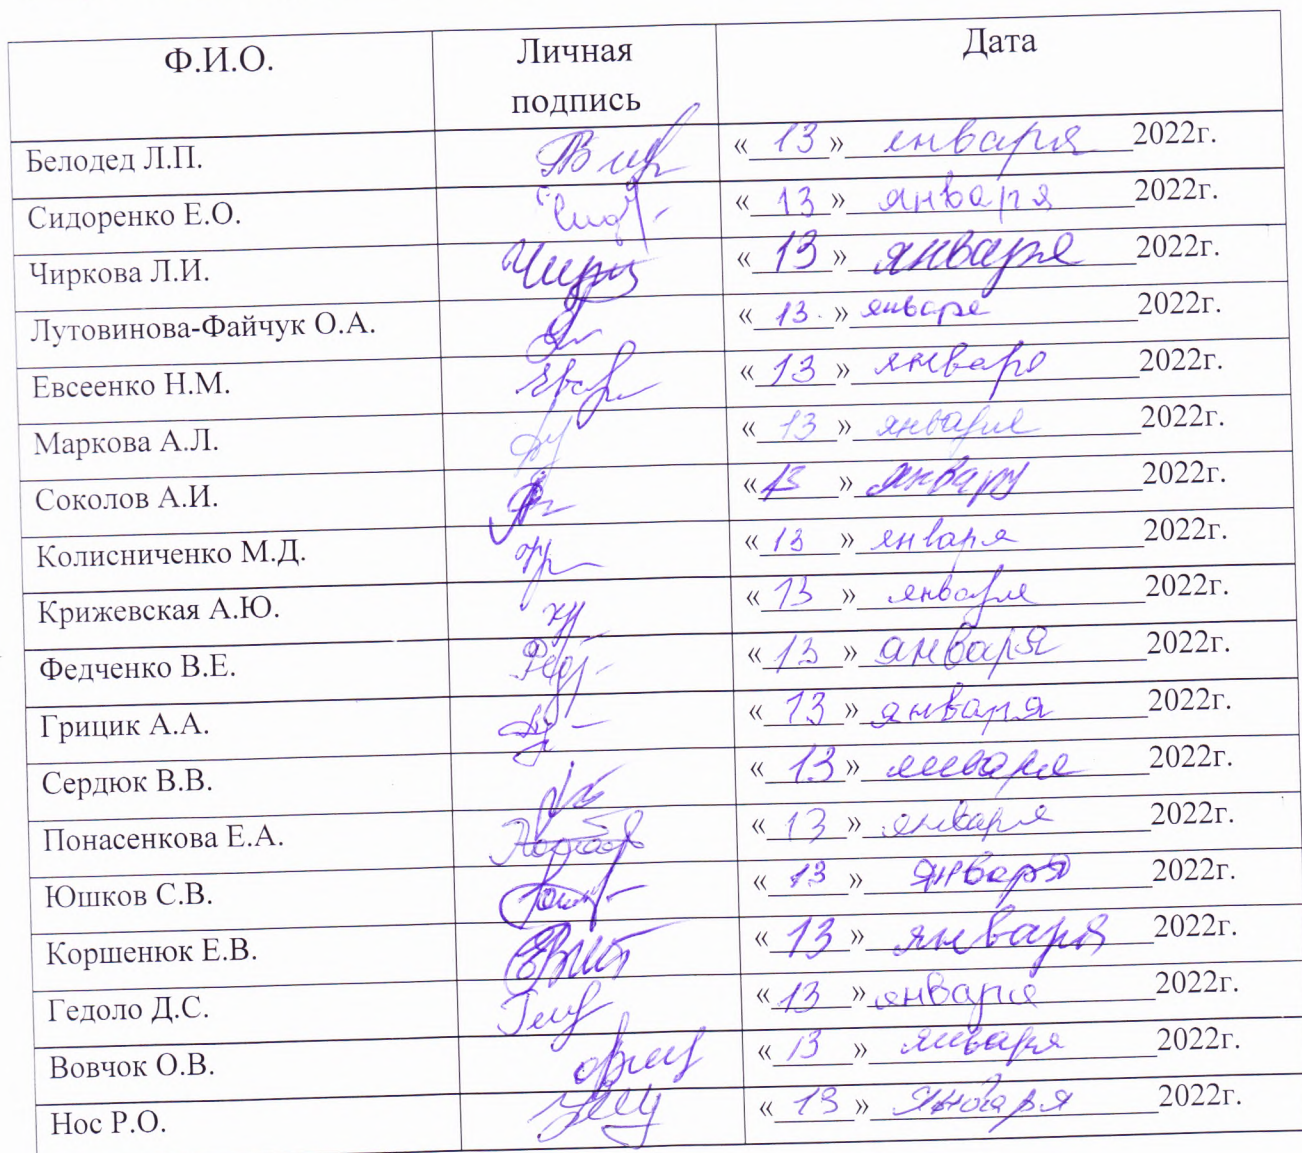 Ф.И.О. Личная Дата
подпись
Белодед Л.П. « 13 » января 2022г.
Сидоренко Е.О. « 13 » января 2022г.
Чиркова Л.И. « 13 » января 2022г.
Лутовинова-Файчук О.А. « 13. » января 2022г.
Евсеенко Н.М. « 13 » января 2022г.
Маркова А.Л. « 13 » января 2022г.
Соколов А.И. « 13 » январу 2022г.
Колисниченко М.Д. « 13 » января 2022г.
Крижевская А.Ю. « 13 » января 2022г.
Федченко В.Е. « 13 » января 2022г.
Грицик А.А. « 13 » января 2022г.
Сердюк В.В. « 13 » января 2022г.
Понасенкова Е.А. « 13 » января 2022г.
Юшков С.В. « 13 » января 2022г.
Коршенюк Е.В. « 13 » января 2022г.
Гедоло Д.С. « 13 » января 2022г.
Вовчок О.В. « 13 » января 2022г.
Нос Р.О. « 13 » января 2022г.